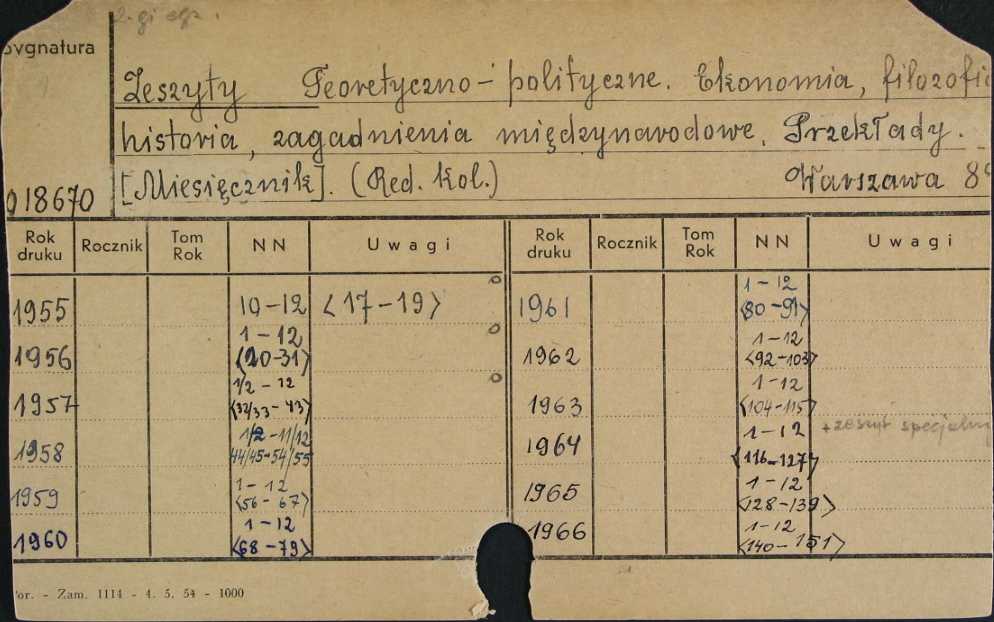 2-gi egz.
Sygnatura
Zeszyty Teoretyczno-polityczne. Ekonomia, filozofia
historia, zagadnienia międzynarodowe. Przekłady.
[Miesięcznik]. (Red. Kol.) Warszawa 8°
018670
Rok druku Rocznik Tom Rok NN Uwagi Rok druku Rocznik Tom Rok NN Uwagi
1955 10-12 <17-19> 1961 1-12 <80-91>
1956 1-12 <20-31> 1962 1-12 <92-103>
1957 1/2-12 <32/33-43> 1963 1-12 <104-115>
1958 1/2-11/12 44/45-54/55 1964 1-12 <116-127> +zeszyt specjalny
1959 1-12 <56-67> 1965 1-12 <128-139>
1960 1-12 <68-79> 1966 1-12 <140-151>
or. - Zam. 1114 - 4. 5. 54 - 1000